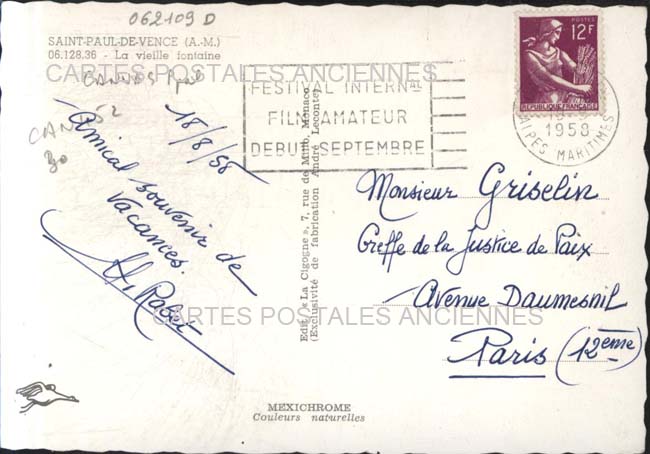 062109 D
SAINT-PAUL-DE-VENCE (A.-M.)
06.128.36 - La vieille fontaine
CARTES POSTALES ANCIENNES
18/8/58
Amical souvenir de
Vacances.
FESTIVAL INTERNAL
FILM AMATEUR
DEBUT SEPTEMBRE
POSTES
12F
REPUBLIQUE FRANÇAISE
1958
ALPES MARITIMES
Edit. « La Cigogne », 7, rue de Millo, Monaco
(Exclusivité de fabrication André Leconte)
Monsieur Griselin
Greffe de la Justice de Paix
Avenue Daumesnil
Paris (12ème)
CARTES POSTALES ANCIENNES
MEXICHROME
Couleurs naturelles